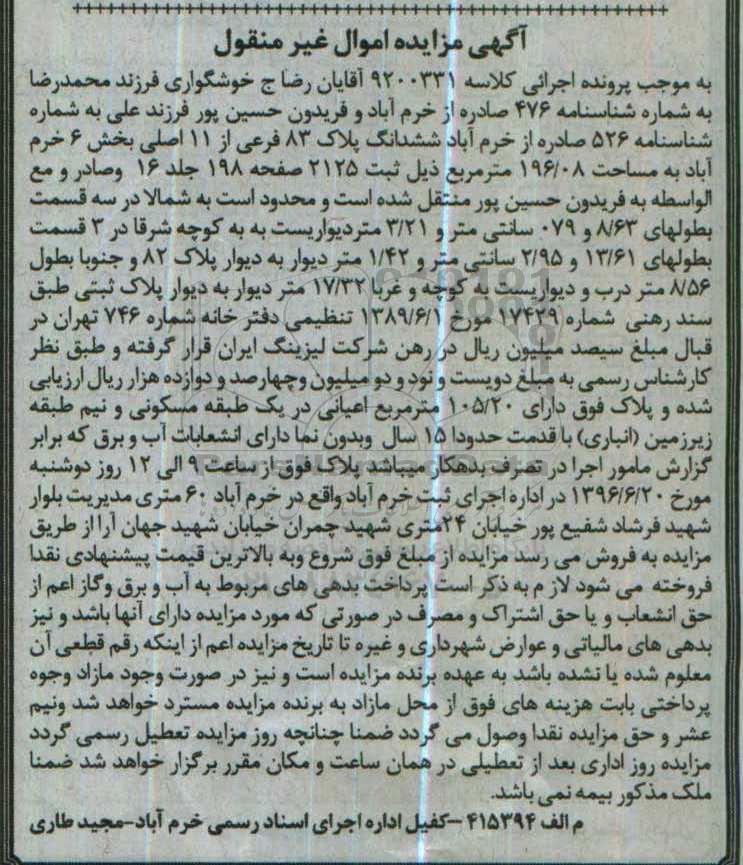 آگهی مزایده اموال غیر منقول
به موجب پرونده اجرائی کلاسه ۹۲۰۰۳۳۱ آقایان رضا ج خوشگواری فرزند محمدرضا
به شماره شناسنامه ۴۷۶ صادره از خرم آباد و فریدون حسین پور فرزند علی به شماره
شناسنامه ۵۲۶ صادره از خرم آباد ششدانگ پلاک ۸۳ فرعی از ۱۱ اصلی بخش ۶ خرم
آباد به مساحت ۱۹۶/۰۸ مترمربع ذیل ثبت ۲۱۲۵ صفحه ۱۹۸ جلد ۱۶ وصادر و مع
الواسطه به فریدون حسین پور منتقل شده است و محدود است به شمالا در سه قسمت
بطولهای ۸/۶۳ و ۰۷۹ سانتی متر و ۳/۲۱ متردیواریست به به کوچه شرقا در ۳ قسمت
بطولهای ۱۳/۶۱ و ۲/۹۵ سانتی متر و ۱/۴۲ متر دیوار به دیوار پلاک ۸۲ و جنوبا بطول
۸/۵۶ متر درب و دیواریست به کوچه و غربا ۱۷/۳۲ متر دیوار به دیوار پلاک ثبتی طبق
سند رهنی شماره ۱۷۴۲۹ مورخ ۱۳۸۹/۶/۱ تنظیمی دفتر خانه شماره ۷۴۶ تهران در
قبال مبلغ سیصد میلیون ریال در رهن شرکت لیزینگ ایران قرار گرفته و طبق نظر
کارشناس رسمی به مبلغ دویست و نود و دو میلیون وچهارصد و دوازده هزار ریال ارزیابی
شده و پلاک فوق دارای ۱۰۵/۲۰ مترمربع اعیانی در یک طبقه مسکونی و نیم طبقه
زیرزمین (انباری) با قدمت حدودا ۱۵ سال وبدون نما دارای انشعابات آب و برق که برابر
گزارش مامور اجرا در تصرف بدهکار میباشد پلاک فوق از ساعت ۹ الی ۱۲ روز دوشنبه
مورخ ۱۳۹۶/۶/۲۰ در اداره اجرای ثبت خرم آباد واقع در خرم آباد ۶۰ متری مدیریت بلوار
شهید فرشاد شفیع پور خیابان ۲۴متری شهید چمران خیابان شهید جهان آرا از طریق
مزایده به فروش می رسد مزایده از مبلغ فوق شروع وبه بالاترین قیمت پیشنهادی نقدا
فروخته می شود لاز م به ذکر است پرداخت بدهی های مربوط به آب و برق وگاز اعم از
حق انشعاب و یا حق اشتراک و مصرف در صورتی که مورد مزایده دارای آنها باشد و نیز
بدهی های مالیاتی و عوارض شهرداری و غیره تا تاریخ مزایده اعم از اینکه رقم قطعی آن
معلوم شده یا نشده باشد به عهده برنده مزایده است و نیز در صورت وجود مازاد وجوه
پرداختی بابت هزینه های فوق از محل مازاد به برنده مزایده مسترد خواهد شد ونیم
عشر و حق مزایده نقدا وصول می گردد ضمنا چنانچه روز مزایده تعطیل رسمی گردد
مزایده روز اداری بعد از تعطیلی در همان ساعت و مکان مقرر برگزار خواهد شد ضمنا
ملک مذکور بیمه نمی باشد.
م الف ۴۱۵۳۹۴ –کفیل اداره اجرای اسناد رسمی خرم آباد-مجید طاری